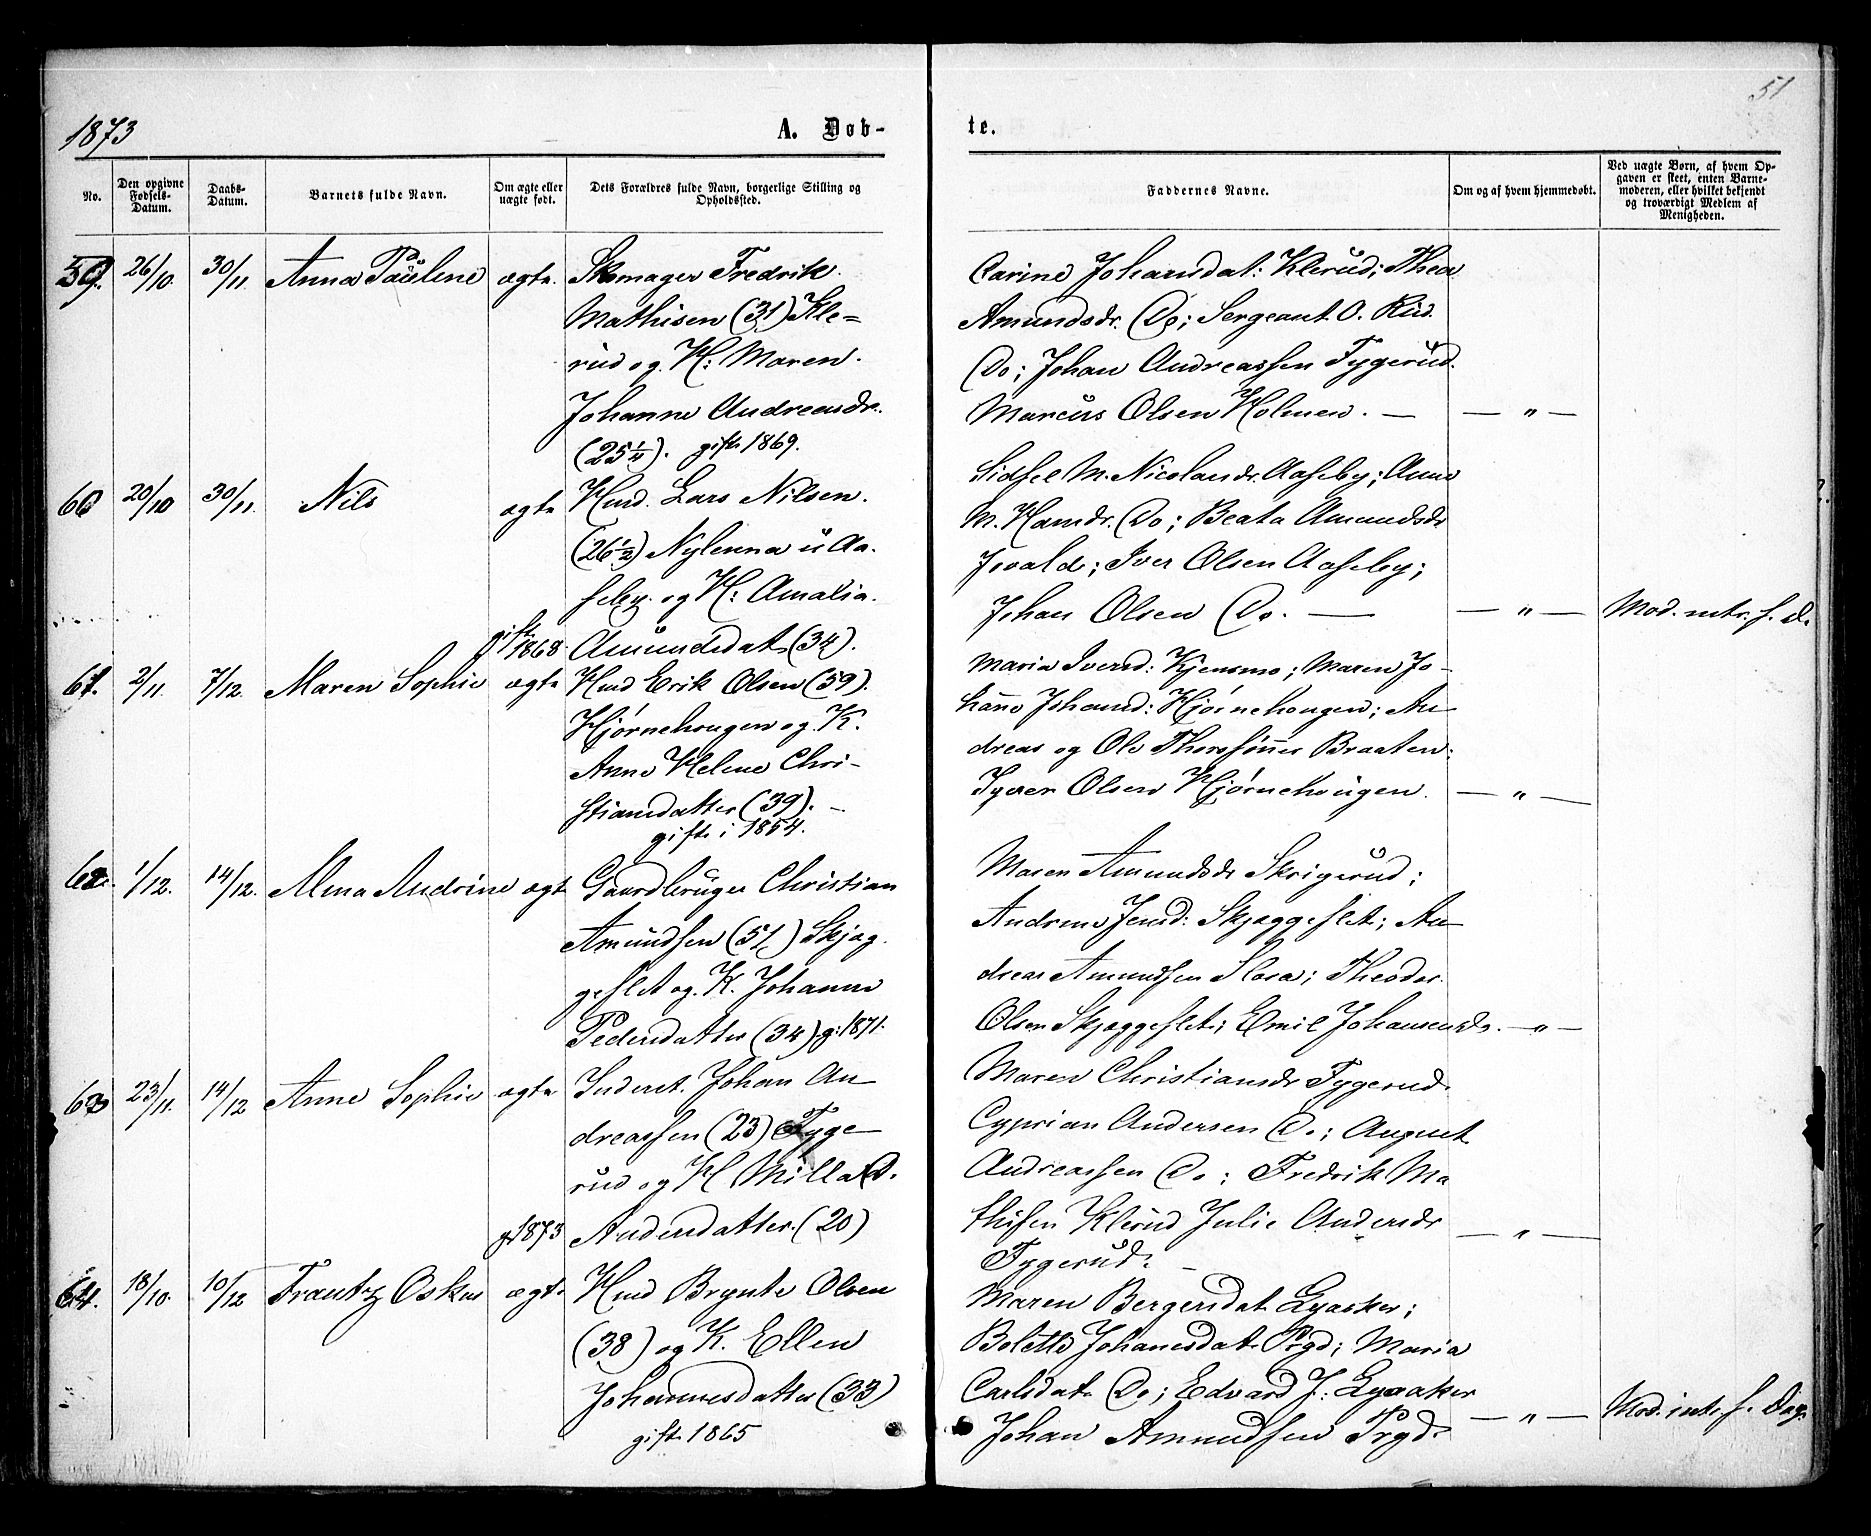 51
1873
A. Døb-
te.
No.
Den opgivne Fødsels-Datum.
Daabs-Datum.
Barnets fulde Navn.
Om ægte eller uægte født.
Dets Forældres fulde Navn, borgerlige Stilling og Opholdssted.
Faddernes Navne.
Om og af hvem hjemmedøbt.
Ved uægte Børn, af hvem Op-
gaven er skeet, enten Barne-
moderen, eller hvilket bekjendt
og troværdigt Medlem af
Menigheden.
59. 26/10. 30/11 Anna Paulene ægte. Skomager Fredrik
Mathisen (31) Kle=
rud og H: Maren
Johanne Andreasdr.
(25 1/4). gift 1869.
Carine Johansdat: Klerud; Thea
Amundsdr. Do; Sergeant O. Rud
Do; Johan Andreassen Tygerud.
Marcus Olsen Holmen. — — " —
60 20/10 30/11. Nils ægte Hmd. Lars Nilsen
(26 1/2) Nylenna u Aa-
seby og H: Amalia
gift 1868 Amundsdat (34).
Sidsel M. Nicolaisdr. Aaseby; Anne
M. Hansdr. Do; Beata Amundsdr
; Iver Olsen Aaseby;
Johan Olsen Do. — — " — Mod. intr. s. D.
61. 2/11. 7/12. Maren Sophie ægte Hmd Erik Olsen (59).
Hjørnehougen og K.
Anne Helene Chri-
stiansdatter (39). —
gift i 1854.
Maria Iversd: Kjensmo; Maren Jo-
hanne Johansd: Hjørnehougen; An
dreas og Ole Braaten;
Syver Olsen Hjørnehougen. — " —
62. 1/12. 14/12. Alma Andrine ægt Gaardbruger Christian
Amundsen (51) Skjæg-
geslet og K. Johanne
Pedersdatter (34) g: 1871.
Maren Amundsdr Skrigerud;
Andrine Jensd: Skjæggeslet; An
dreas Amundsen Slora; Theodor
Olsen Skjæggeslet; Emil Johansen do. — " —
63 23/11. 14/12 Anne Sophie ægte Inderst. Johan An
dreassen (23) Tyge
rud og H Milla D.
g 1873 Andersdatter. (20)
Maren Christiansdr Tygerud.
Cyprian Andersen Do; August
Andreassen Do; Fredrik Ma
thisen Klerud Julie Andersdr
Tygerud. — — " —
64. 18/10. 10/12 Frantz Oskar ægte Hmd Brynte Olsen
(38) og K. Ellen
Johannesdatter (33)
gift 1865
Maren Bergersdat Lyaaker;
Bolette Johannesdat Prgd; Maria
Carlsdat Do; Edvard J: Lyaaker
Johan Amundsen Prgd. — " — Mod. intr. s. Dag.